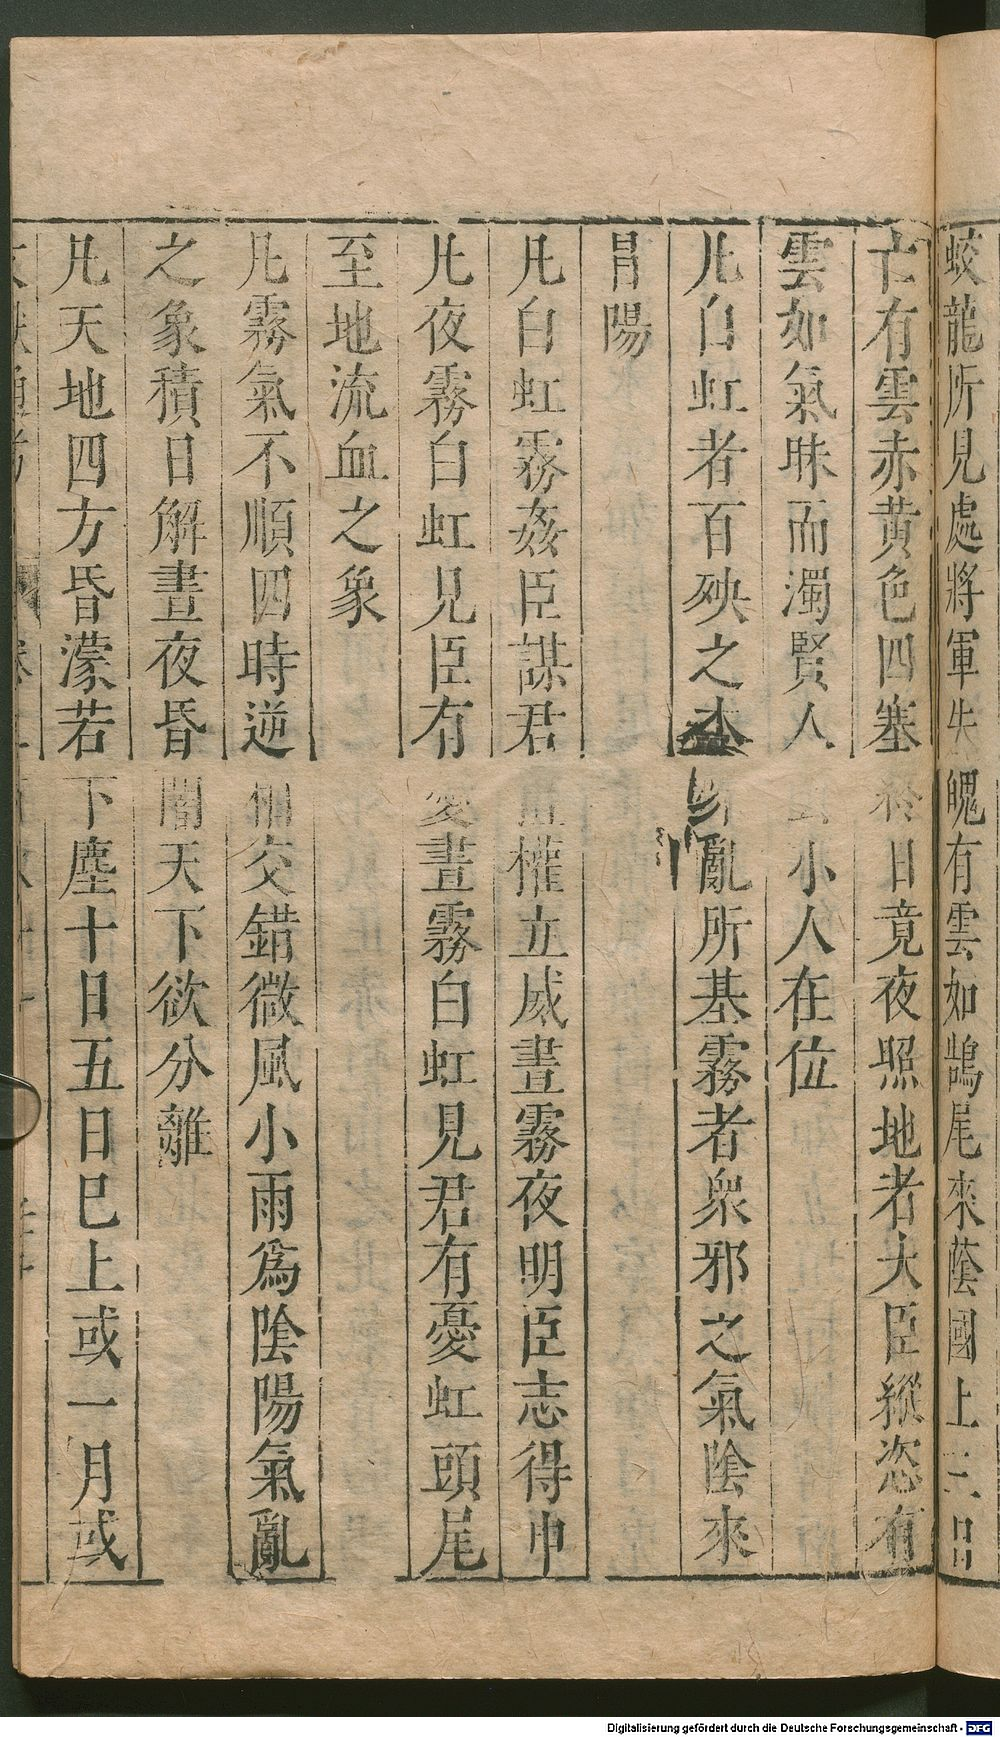 蛟龍所見處將軍失魄有雲如鵲尾來蔭國上三日
亡有雲赤黃色四塞終日竟夜照地者大臣縱恣有
雲如氣昧而濁賢人去小人在位
凡白虹者百殃之本衆亂所基霧者衆邪之氣陰來
冒陽
凡白虹霧姦臣謀君擅權立威晝霧夜明臣志得申
凡夜霧白虹見臣有憂晝霧白虹見君有憂虹頭尾
至地流血之象
凡霧氣不順四時逆相交錯微風小雨為陰陽氣亂
之象積日不解晝夜昏闇天下欲分離
凡天地四方昏濛若下塵十日五日已上或一月或
Digitalisierung gefördert durch die Deutsche Forschungsgemeinschaft - DFG